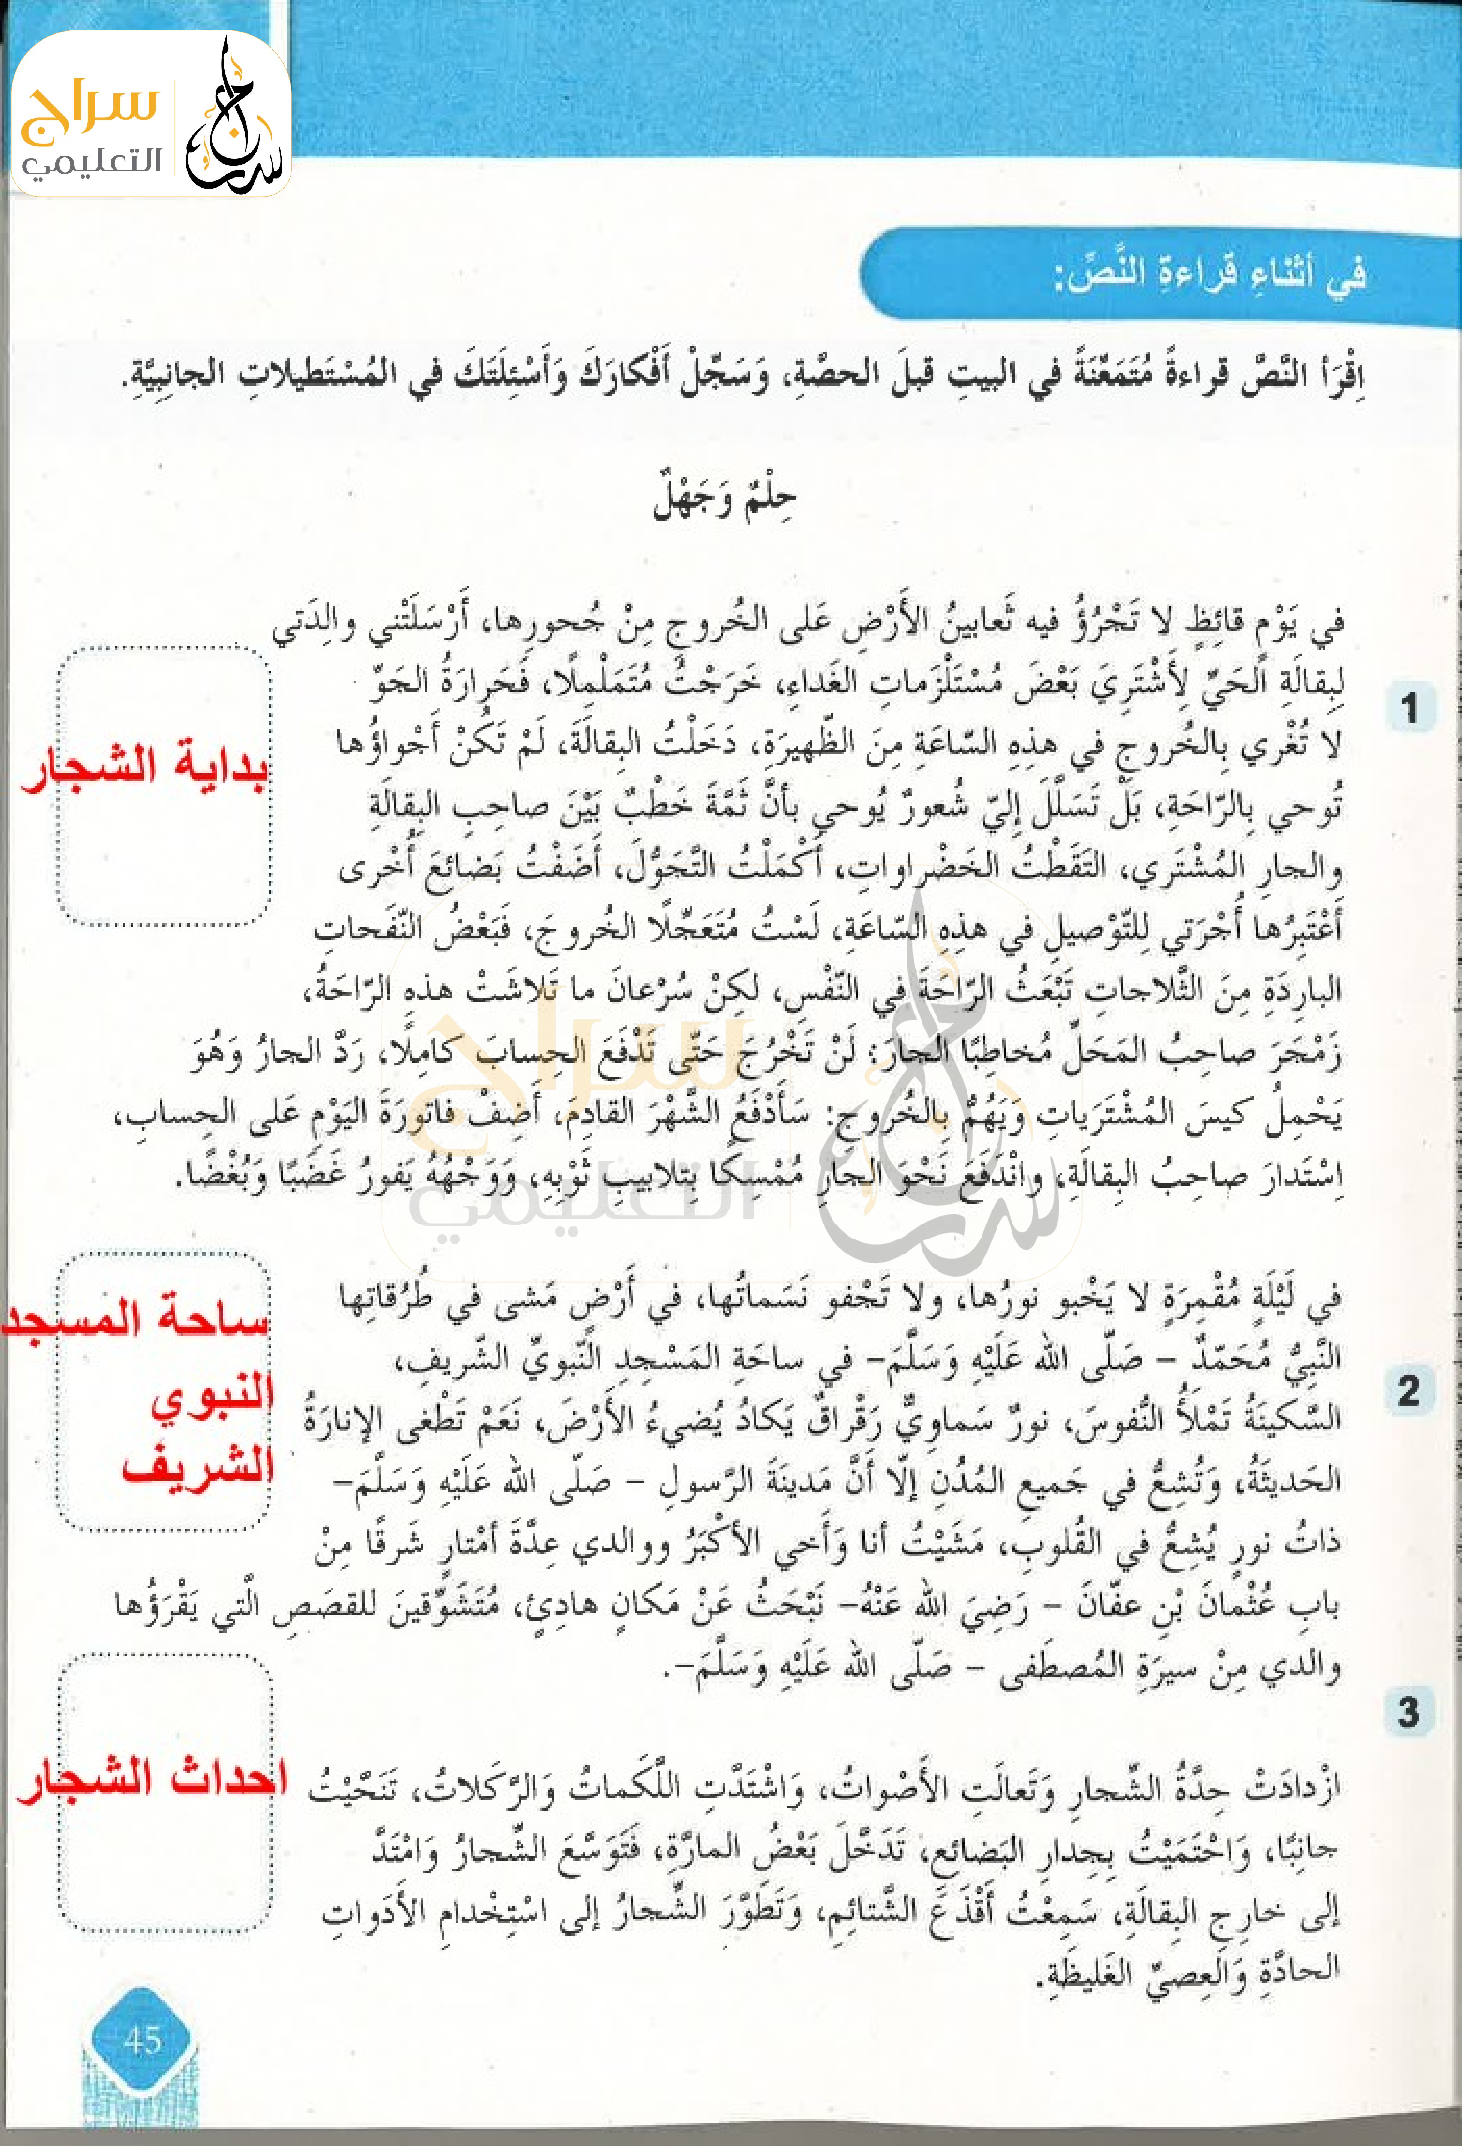 سراج
التعليمي
في أثناءِ قراءةِ النَّصِّ:
اِقْرَأ النَّصَّ قراءةً مُتَمَعِّنَةً في البيتِ قبلَ الحصَّةِ، وَسَجِّلْ أَفْكارَكَ وَأَسْئِلَتَكَ في المُسْتَطيلاتِ الجانِبِيَّةِ.
حِلْمٌ وَجَهْلٌ
1
في يَوْمٍ قائِظٍ لا تَجْرُؤُ فيه ثَعابينُ الأَرْضِ عَلى الخُروجِ مِنْ جُحورِها، أَرْسَلَتْني والِدَتي
لِبِقالَةِ الحَيِّ لِأَشْتَرِيَ بَعْضَ مُسْتَلْزَماتِ الغَداءِ، خَرَجْتُ مُتَمَلْمِلًا، فَحَرارَةُ الجَوِّ
لا تُغْري بِالخُروجِ في هذِهِ السّاعَةِ مِنَ الظَّهيرَةِ، دَخَلْتُ البِقالَةَ، لَمْ تَكُنْ أَجْواؤُها
تُوحي بِالرّاحَةِ، بَلْ تَسَلَّلَ إِليّ شُعورٌ يُوحي بأنَّ ثَمَّةَ خَطْبٌ بَيْنَ صاحِبِ البِقالَةِ
والجارِ المُشْتَري، التَقَطْتُ الخَضْراواتِ، أَكْمَلْتُ التَّجَوُّلَ، أَضَفْتُ بَضائِعَ أُخْرى
أَعْتَبِرُها أُجْرَتي لِلتّوْصيلِ في هذِهِ السّاعَةِ، لَسْتُ مُتَعَجِّلًا الخُروجَ، فَبَعْضُ النّفَحاتِ
البارِدَةِ مِنَ الثَّلاجاتِ تَبْعَثُ الرّاحَةَ في النّفْسِ، لكِنْ سُرْعانَ ما تَلاشَتْ هذهِ الرّاحَةُ،
زَمْجَرَ صاحِبُ المَحَلِّ مُخاطِبًا الجارَ: لَنْ تَخْرُجَ حَتّى تَدْفَعَ الحِسابَ كامِلًا، رَدَّ الجارُ وَهُوَ
يَحْمِلُ كيسَ المُشْتَرَياتِ وَيَهُمُّ بِالخُروجِ: سَأَدْفَعُ الشَّهْرَ القادِمَ، أَضِفْ فاتورَةَ اليَوْمِ عَلى الحِسابِ،
اِسْتَدارَ صاحِبُ البِقالَةِ، وانْدَفَعَ نَحْوَ الجَارِ مُمْسِكًا بِتلابيبِ ثَوْبِهِ، وَوَجْهُهُ يَفورُ غَضَبًا وَبُغْضًا.
بداية الشجار
2
في لَيْلَةٍ مُقْمِرَةٍ لا يَخْبو نورُها، ولا تَجْفو نَسَماتُها، في أَرْضٍ مَشى في طُرُقاتِها
النَّبِيُّ مُحَمّدٌ – صَلّى الله عَلَيْهِ وَسَلَّمَ– في ساحَةِ المَسْجِدِ النّبويِّ الشّريفِ،
السَّكينَةُ تَمْلَأُ النُّفوسَ، نورٌ سَماوِيٌّ رَقْراقٌ يَكادُ يُضيءُ الأَرْضَ، نَعَمْ تَطْغى الإنارَةُ
الحَديثَةُ، وَتُشِعُّ في جَميعِ المُدُنِ إلّا أَنَّ مَدينَةَ الرَّسولِ – صَلّى الله عَلَيْهِ وَسَلَّمَ–
ذاتُ نورٍ يُشِعُّ في القُلوبِ، مَشَيْتُ أنا وَأَخي الأَكْبَرُ ووالدي عِدَّةَ أمْتارٍ شَرقًا مِنْ
بابِ عُثْمانَ بْنِ عفّانَ – رَضِيَ الله عَنْهُ– نَبْحَثُ عَنْ مَكانٍ هادِئٍ، مُتَشَوِّقينَ للقصَصِ الَّتي يَقْرَؤُها
والدي مِنْ سيرَةِ المُصطَفى – صَلّى الله عَلَيْهِ وَسَلَّمَ–.
ساحة المسجد
النبوي
الشريف
3
ازْدادَتْ حِدَّةُ الشِّجارِ وَتَعالَتِ الأَصْواتُ، وَاشْتَدَّتِ اللَّكَماتُ وَالرَّكَلاتُ، تَنَحَّيْتُ
جانِبًا، وَاحْتَمَيْتُ بِجِدارِ البَضائِعِ، تَدَخَّلَ بَعْضُ المارَّةِ، فَتَوَسَّعَ الشِّجارُ وَامْتَدَّ
إلى خارِجِ البِقالَةِ، سَمِعْتُ أَقْذَعَ الشَّتائِمِ، وَتَطَوَّرَ الشِّجارُ إلى اسْتِخْدامِ الأَدَواتِ
الحادَّةِ وَالعِصيِّ الغَليظَةِ.
احداث الشجار
45